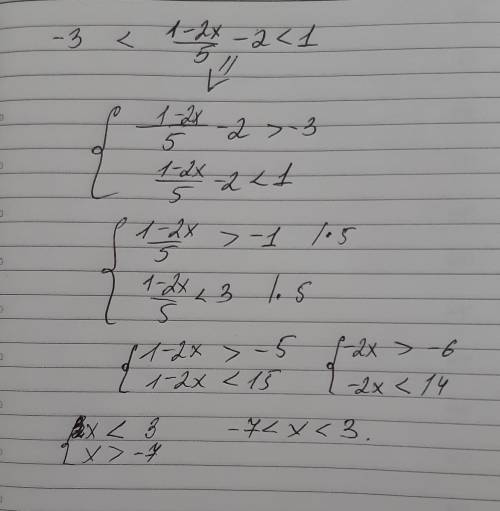 -3 < (1-2x)/5 - 2 < 1
{ (1-2x)/5 - 2 > -3
(1-2x)/5 - 2 < 1
{ (1-2x)/5 > -1 /· 5
(1-2x)/5 < 3 /· 5
{ 1-2x > -5 { -2x > -6
1-2x < 15 -2x < 14
{ x < 3 -7 < x < 3.
x > -7